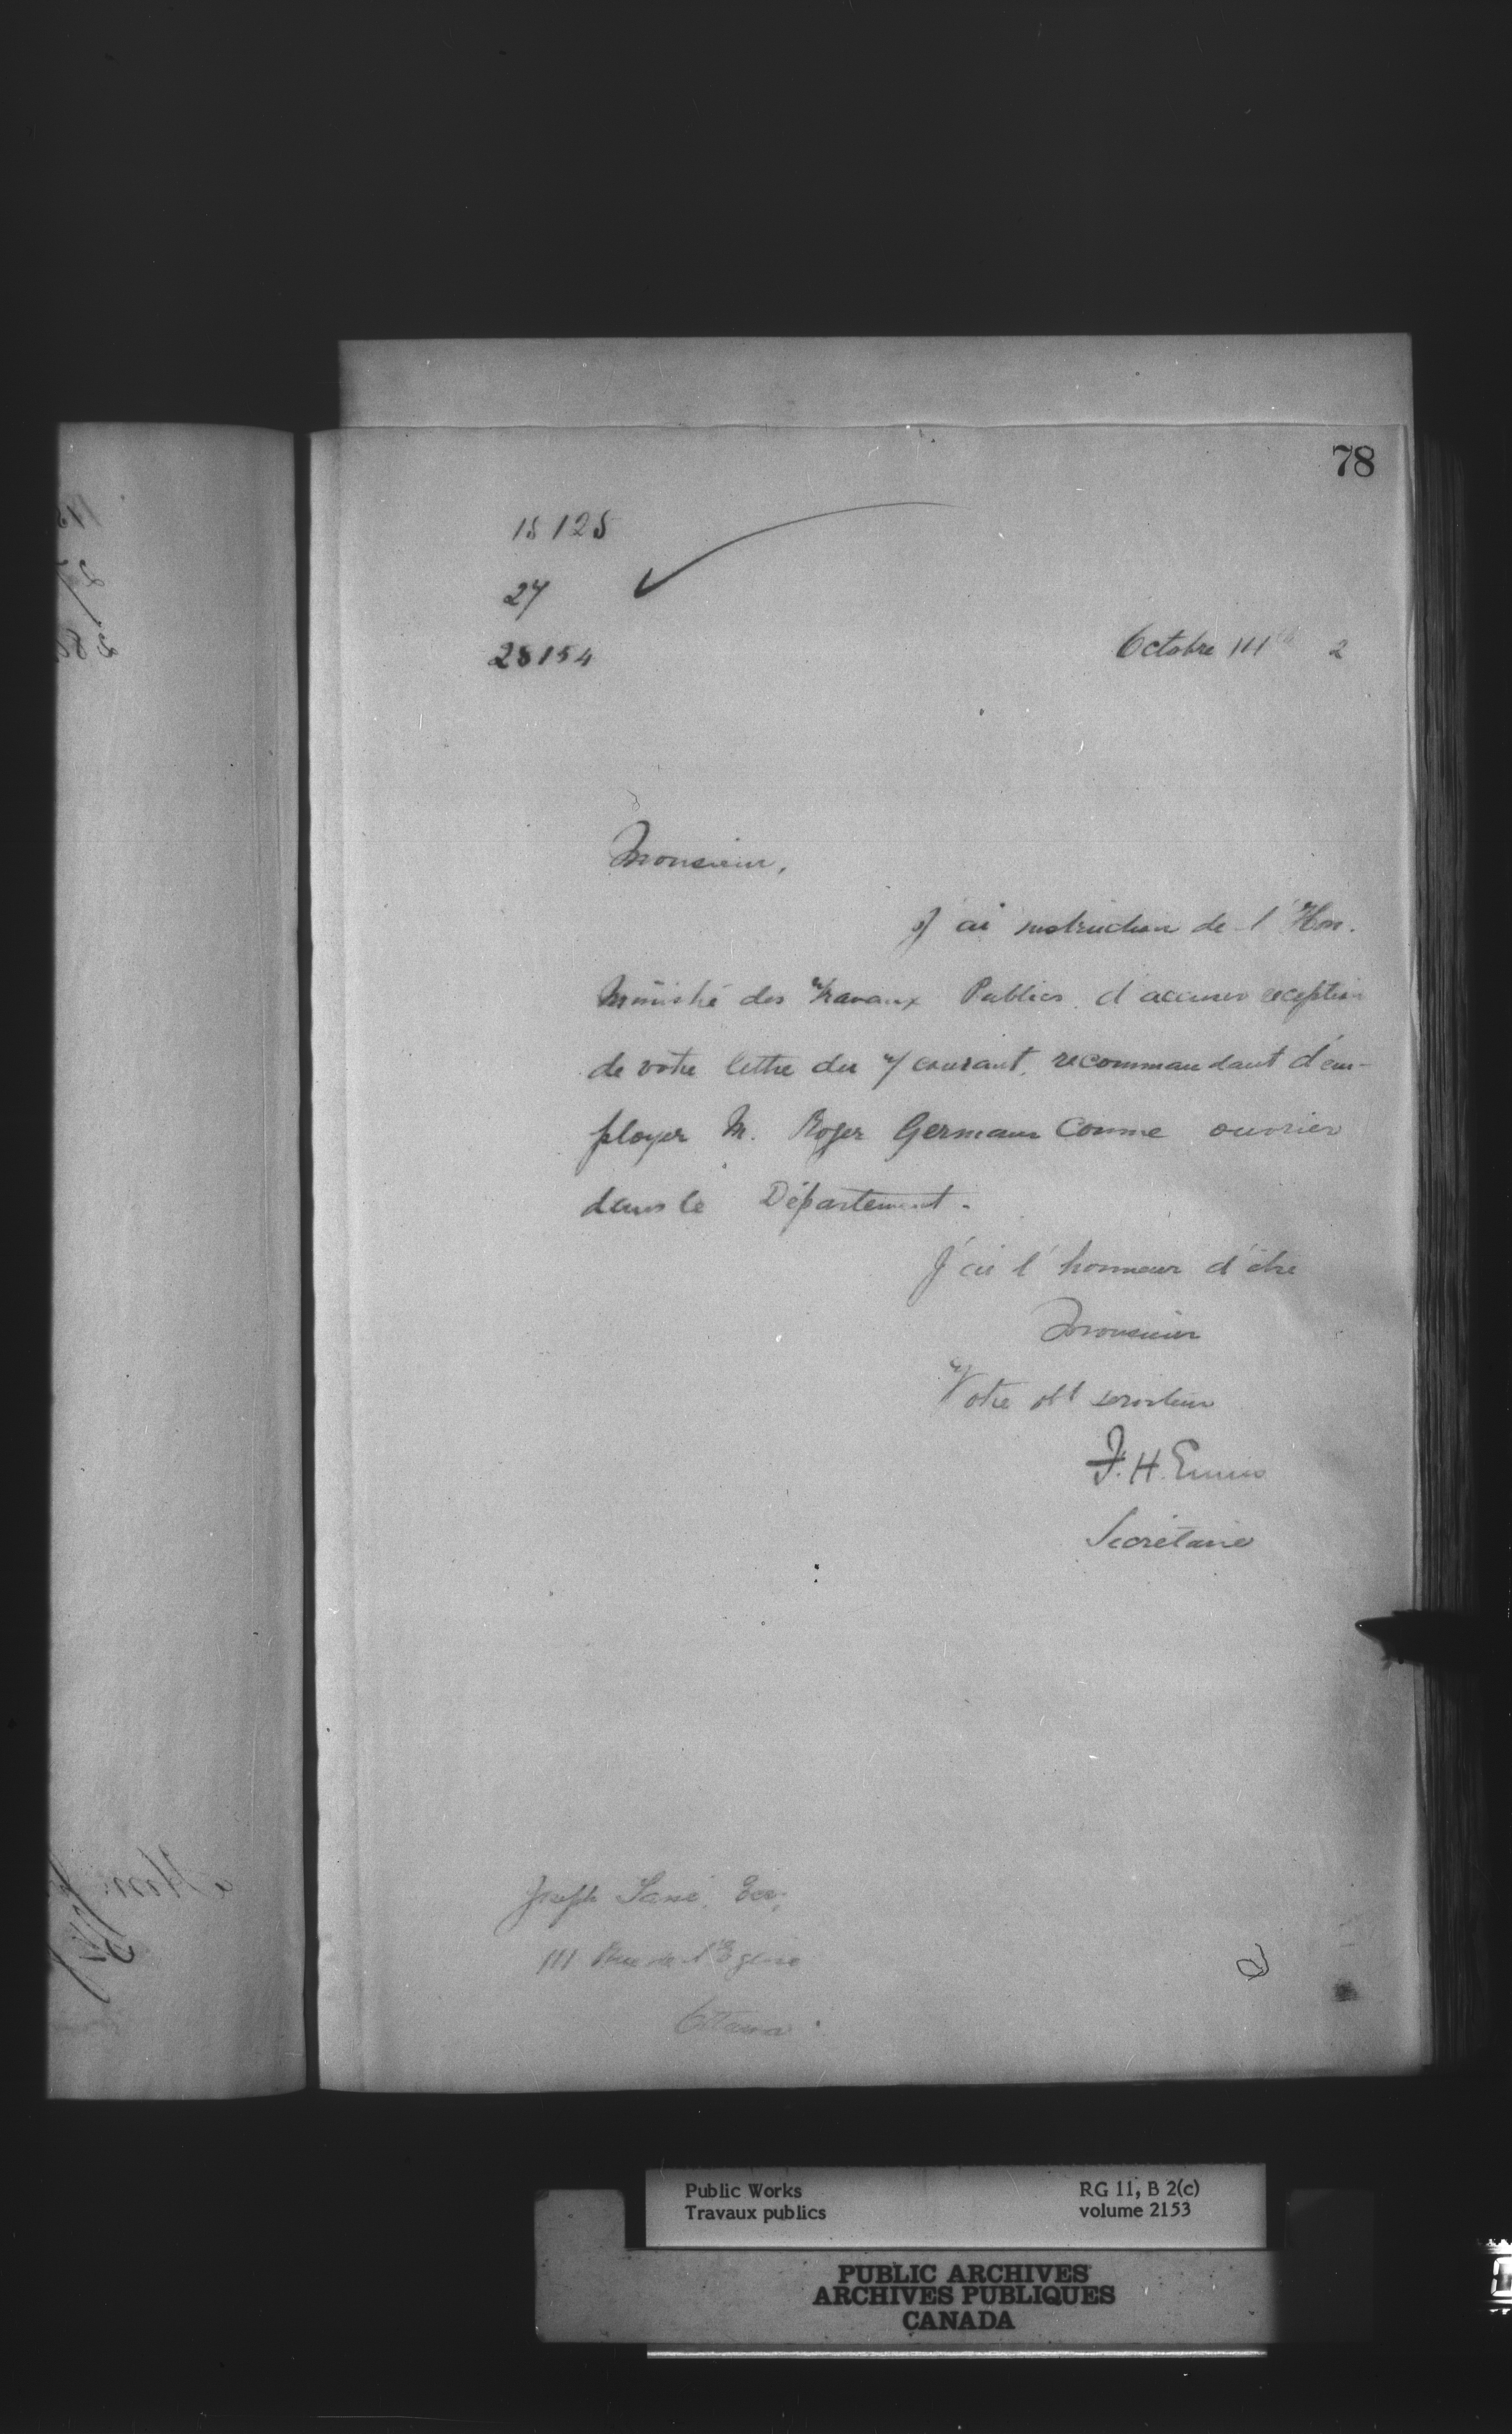 78
15125
27
28154
Octobre 2
Monsieur,
J'ai instruction de l'Hon.
Ministre des Travaux Publics d'accuser reception
de votre lettre du 7 courant, recommandant d'em-
ployer M. Roger Germain comme ouvrier
dans le Département.
J'ai l'honneur d'être
Monsieur
Votre obt serviteur
F. H. Ennis
Secrétaire
Joseph Ecr,
111 Rue de l'Eglise
Ottawa
Public Works
Travaux publics
RG 11, B 2(c)
volume 2153
PUBLIC ARCHIVES
ARCHIVES PUBLIQUES
CANADA